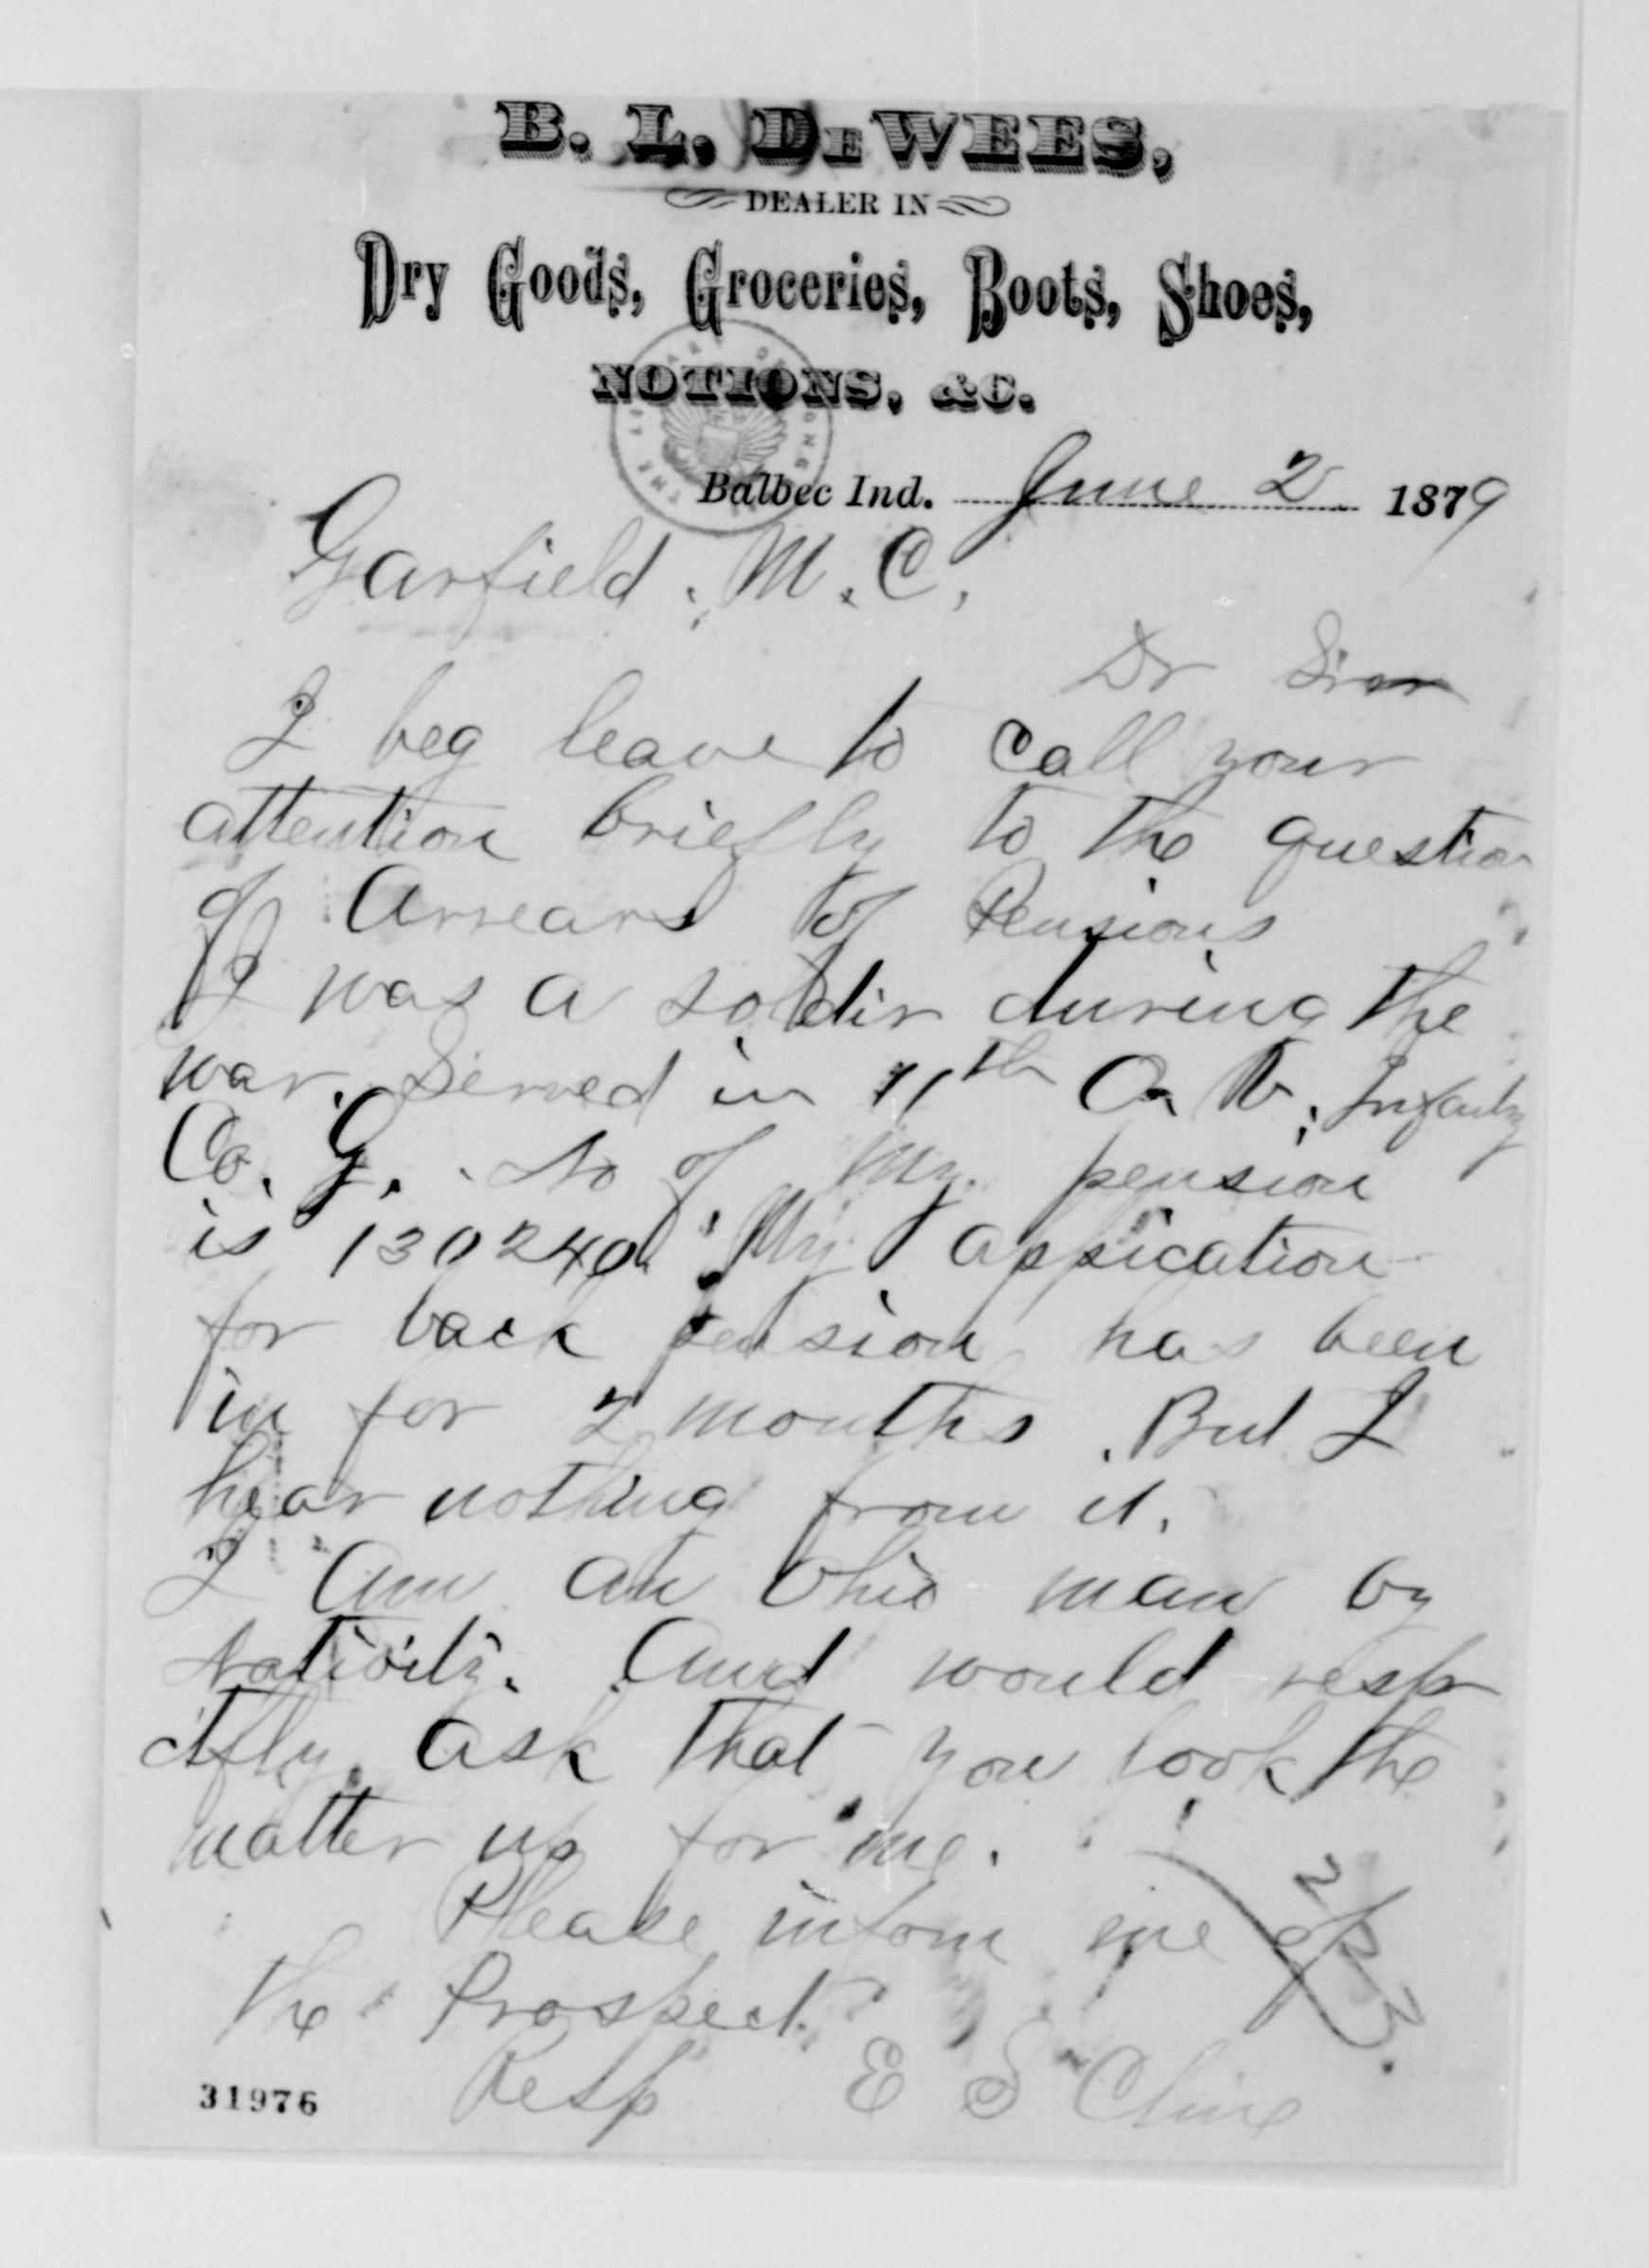 B. L. DEWEES,
DEALER IN
Dry Goods, Groceries, Boots, Shoes,
NOTIONS, &C.
Balbec Ind. June 2 1879
Garfield. M. C.
Dr Sir
I beg leave to call your
attention briefly to the question
of Arrears of Pensions
I was a soldir during the
war. Served in 11th O. V. Infanty
Co. G. No of my pension
is 130240. My appication
for back pension has been
in for 2 months. But I
hear nothing from it.
I Am an Ohio man by
Nativity. And would resp
ctfly ask that you look the
matter up for me.
Please inform me of
the Prospect.
Resp E S Cline
31976